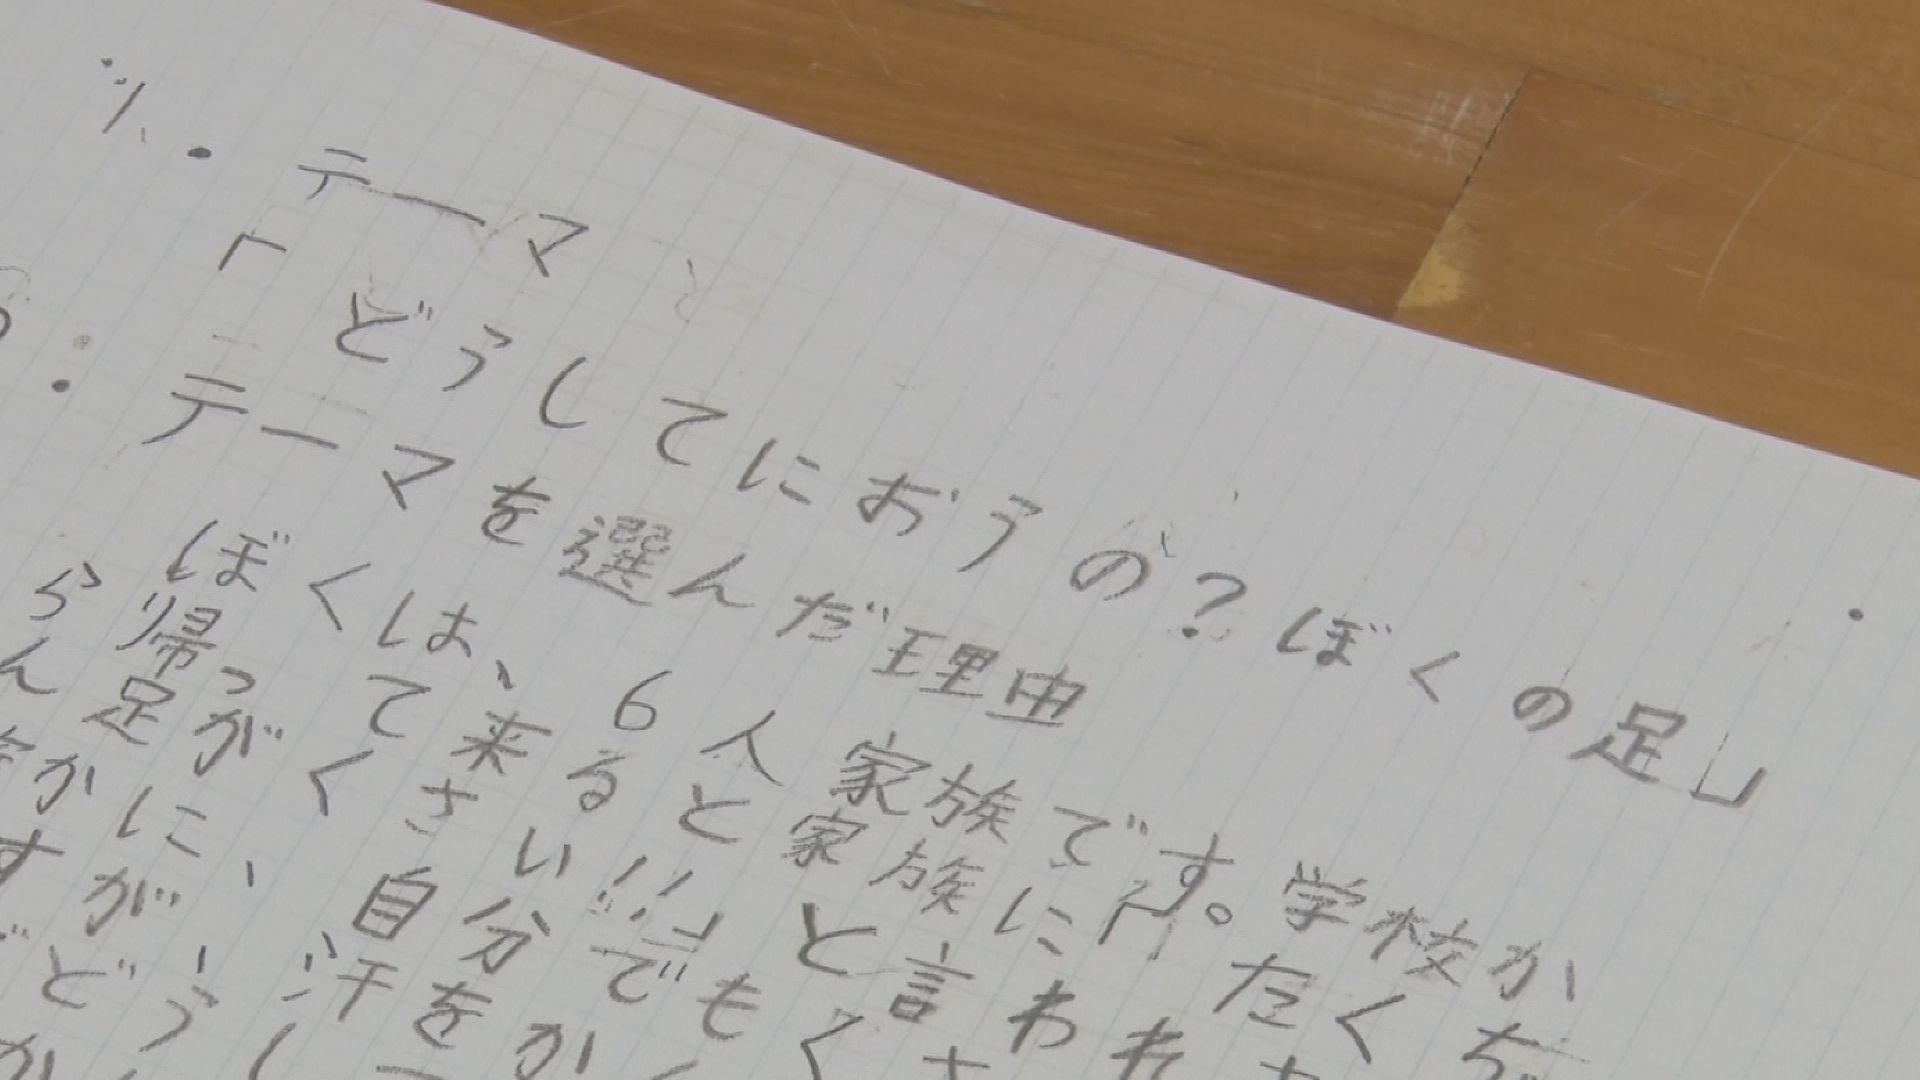 ・テーマ
「どうしてにおうの?ぼくの足」
・テーマを選んだ理由
ぼくは、6人家族です。学校か
ら帰って来ると家族に「たくち
ん足がくさい!!」と言われ
かに、自分でもくさ
すが、汗をか
どうし